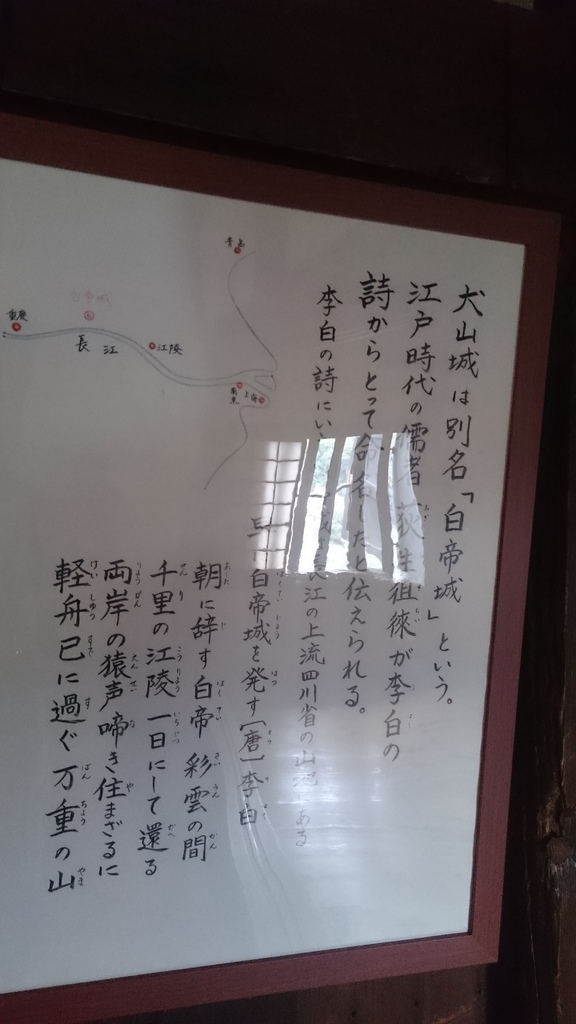 犬山城は別名「白帝城」という。
江戸時代の儒者 荻生徂徠が李白の
詩からとって命名したと伝えられる。
李白の詩にい
長江の上流四川省の山
ある
白帝城を発す[唐]李白
朝に辞す白帝 彩雲の間
千里の江陵 一日にして還る
両岸の猿声啼き住まざるに
軽舟已に過ぐ万重の山
青島
白帝城
重慶
長江
江陵
南京
上海